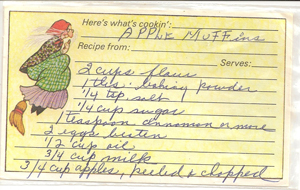 Here's what's cookin': APPLE MUFFINS
Recipe from: Serves:
2 cups flour
1 tbs. baking powder
1/4 tsp salt
1/4 cup sugar
1 teaspoon cinnamon or more
2 eggs beaten
1/2 cup oil
3/4 cup milk
3/4 cup apples, peeled & chopped